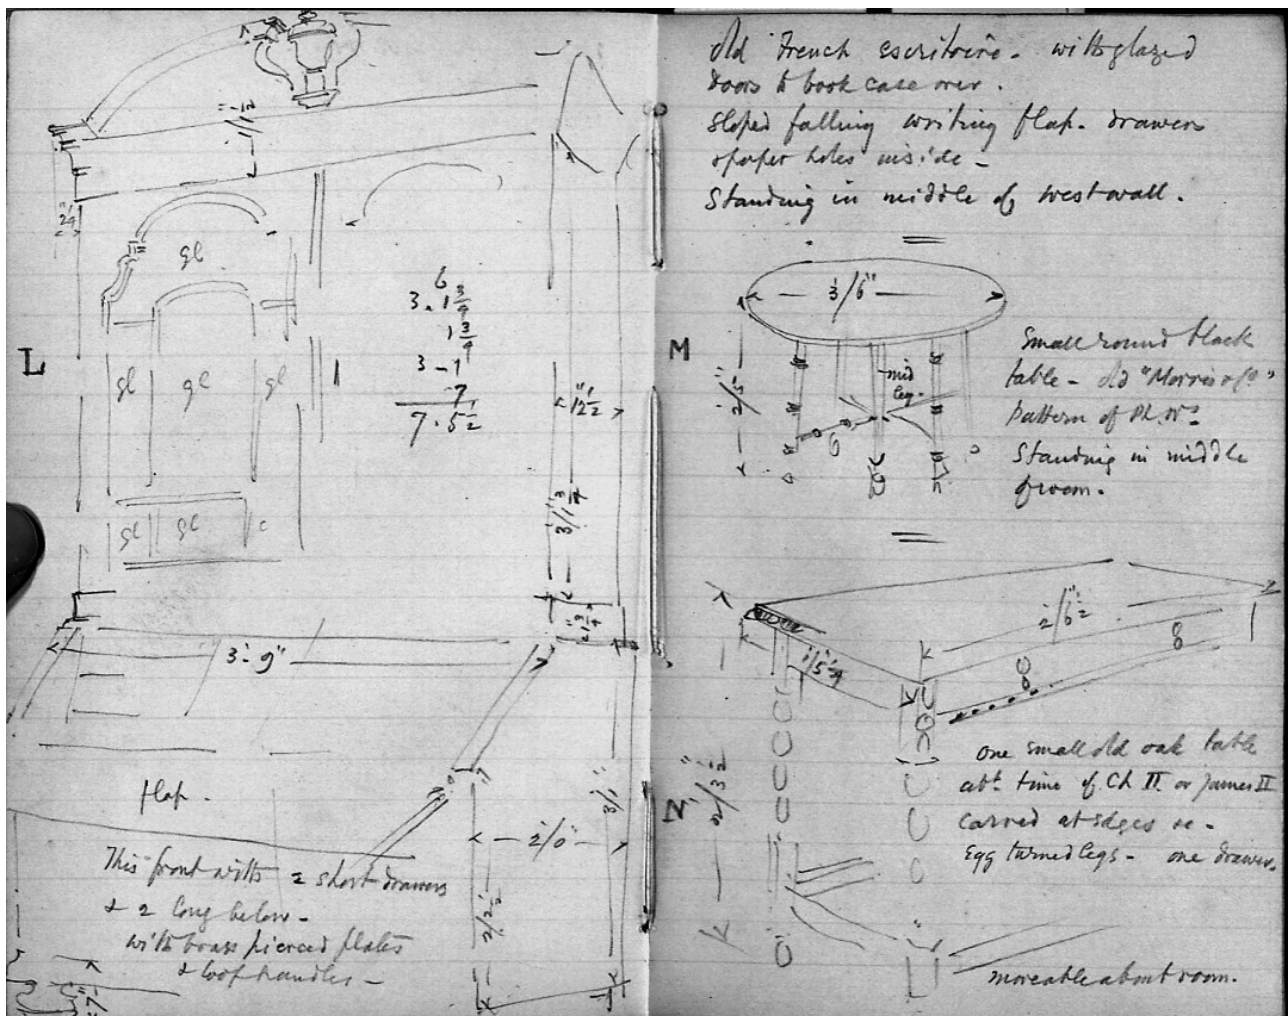 L
1' 1½"
2¼"
gl
gl
gl
gl
gl
gl
6
3.1¾
1¾
3-1
7
7.5½
12½"
3'/1¾"
1¾"
3'-9"
flap.
2'/0"
3'/1"
2'/2½"
7"
This front with 2 short drawers
& 2 long below -
with brass pierced plates
& loop handles -
old French escritoire - with glazed
doors to book case over.
Sloped falling writing flap. drawers
& paper holes inside -
Standing in middle of west wall.
M
3'/6"
2'/5"
mid
leg.
Small round black
table - old "Morris & Co"
pattern of Ph. W's
Standing in middle
of room.
N
2'/6½"
1'/5¼"
2'/3½"
one small old oak table
abt. time of Ch II. or James II
carved at edges
Egg turned legs - one drawer.
moveable about room.